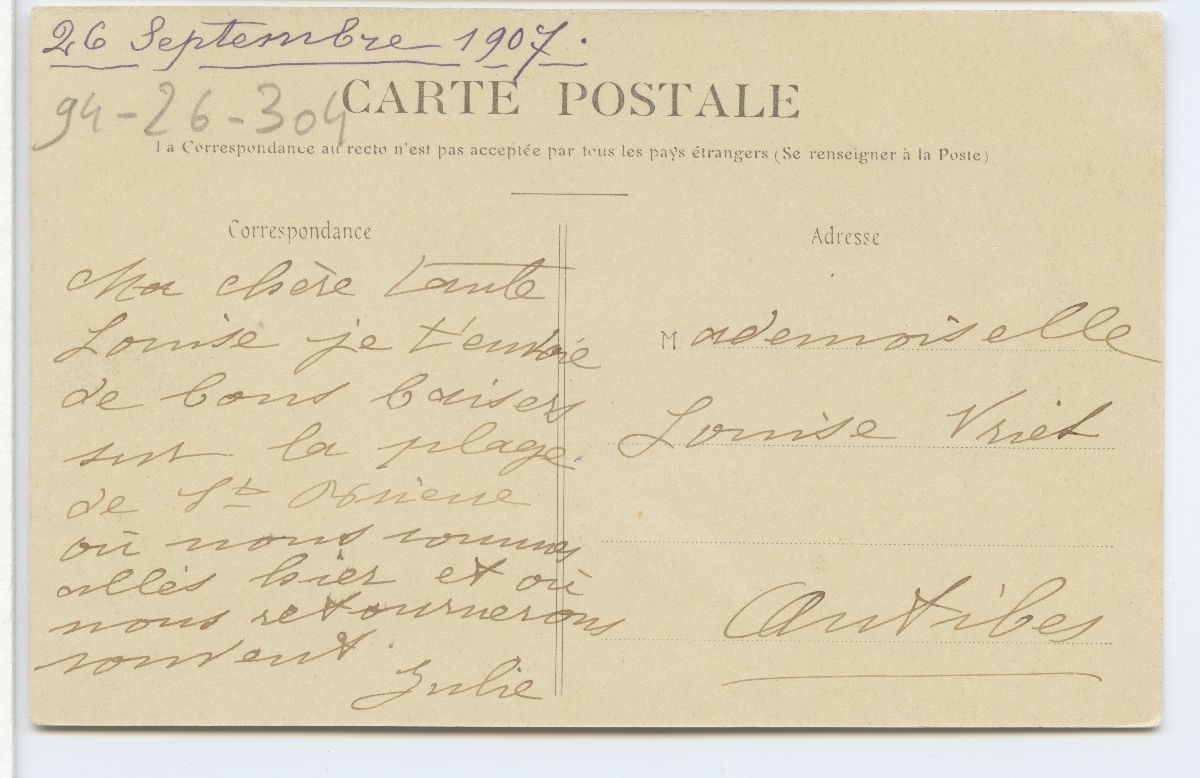 26 Septembre 1907.
94-26-304
CARTE POSTALE
La Correspondance au recto n'est pas acceptée par tous les pays étrangers (Se renseigner à la Poste)
Correspondance
Ma chère tante
Louise je t'envoie
de bons baisers
sur la plage
de St
où nous sommes
allés hier et où
nous retournerons
souvent.
Julie
Adresse
Mademoiselle
Louise Vriet
Antibes